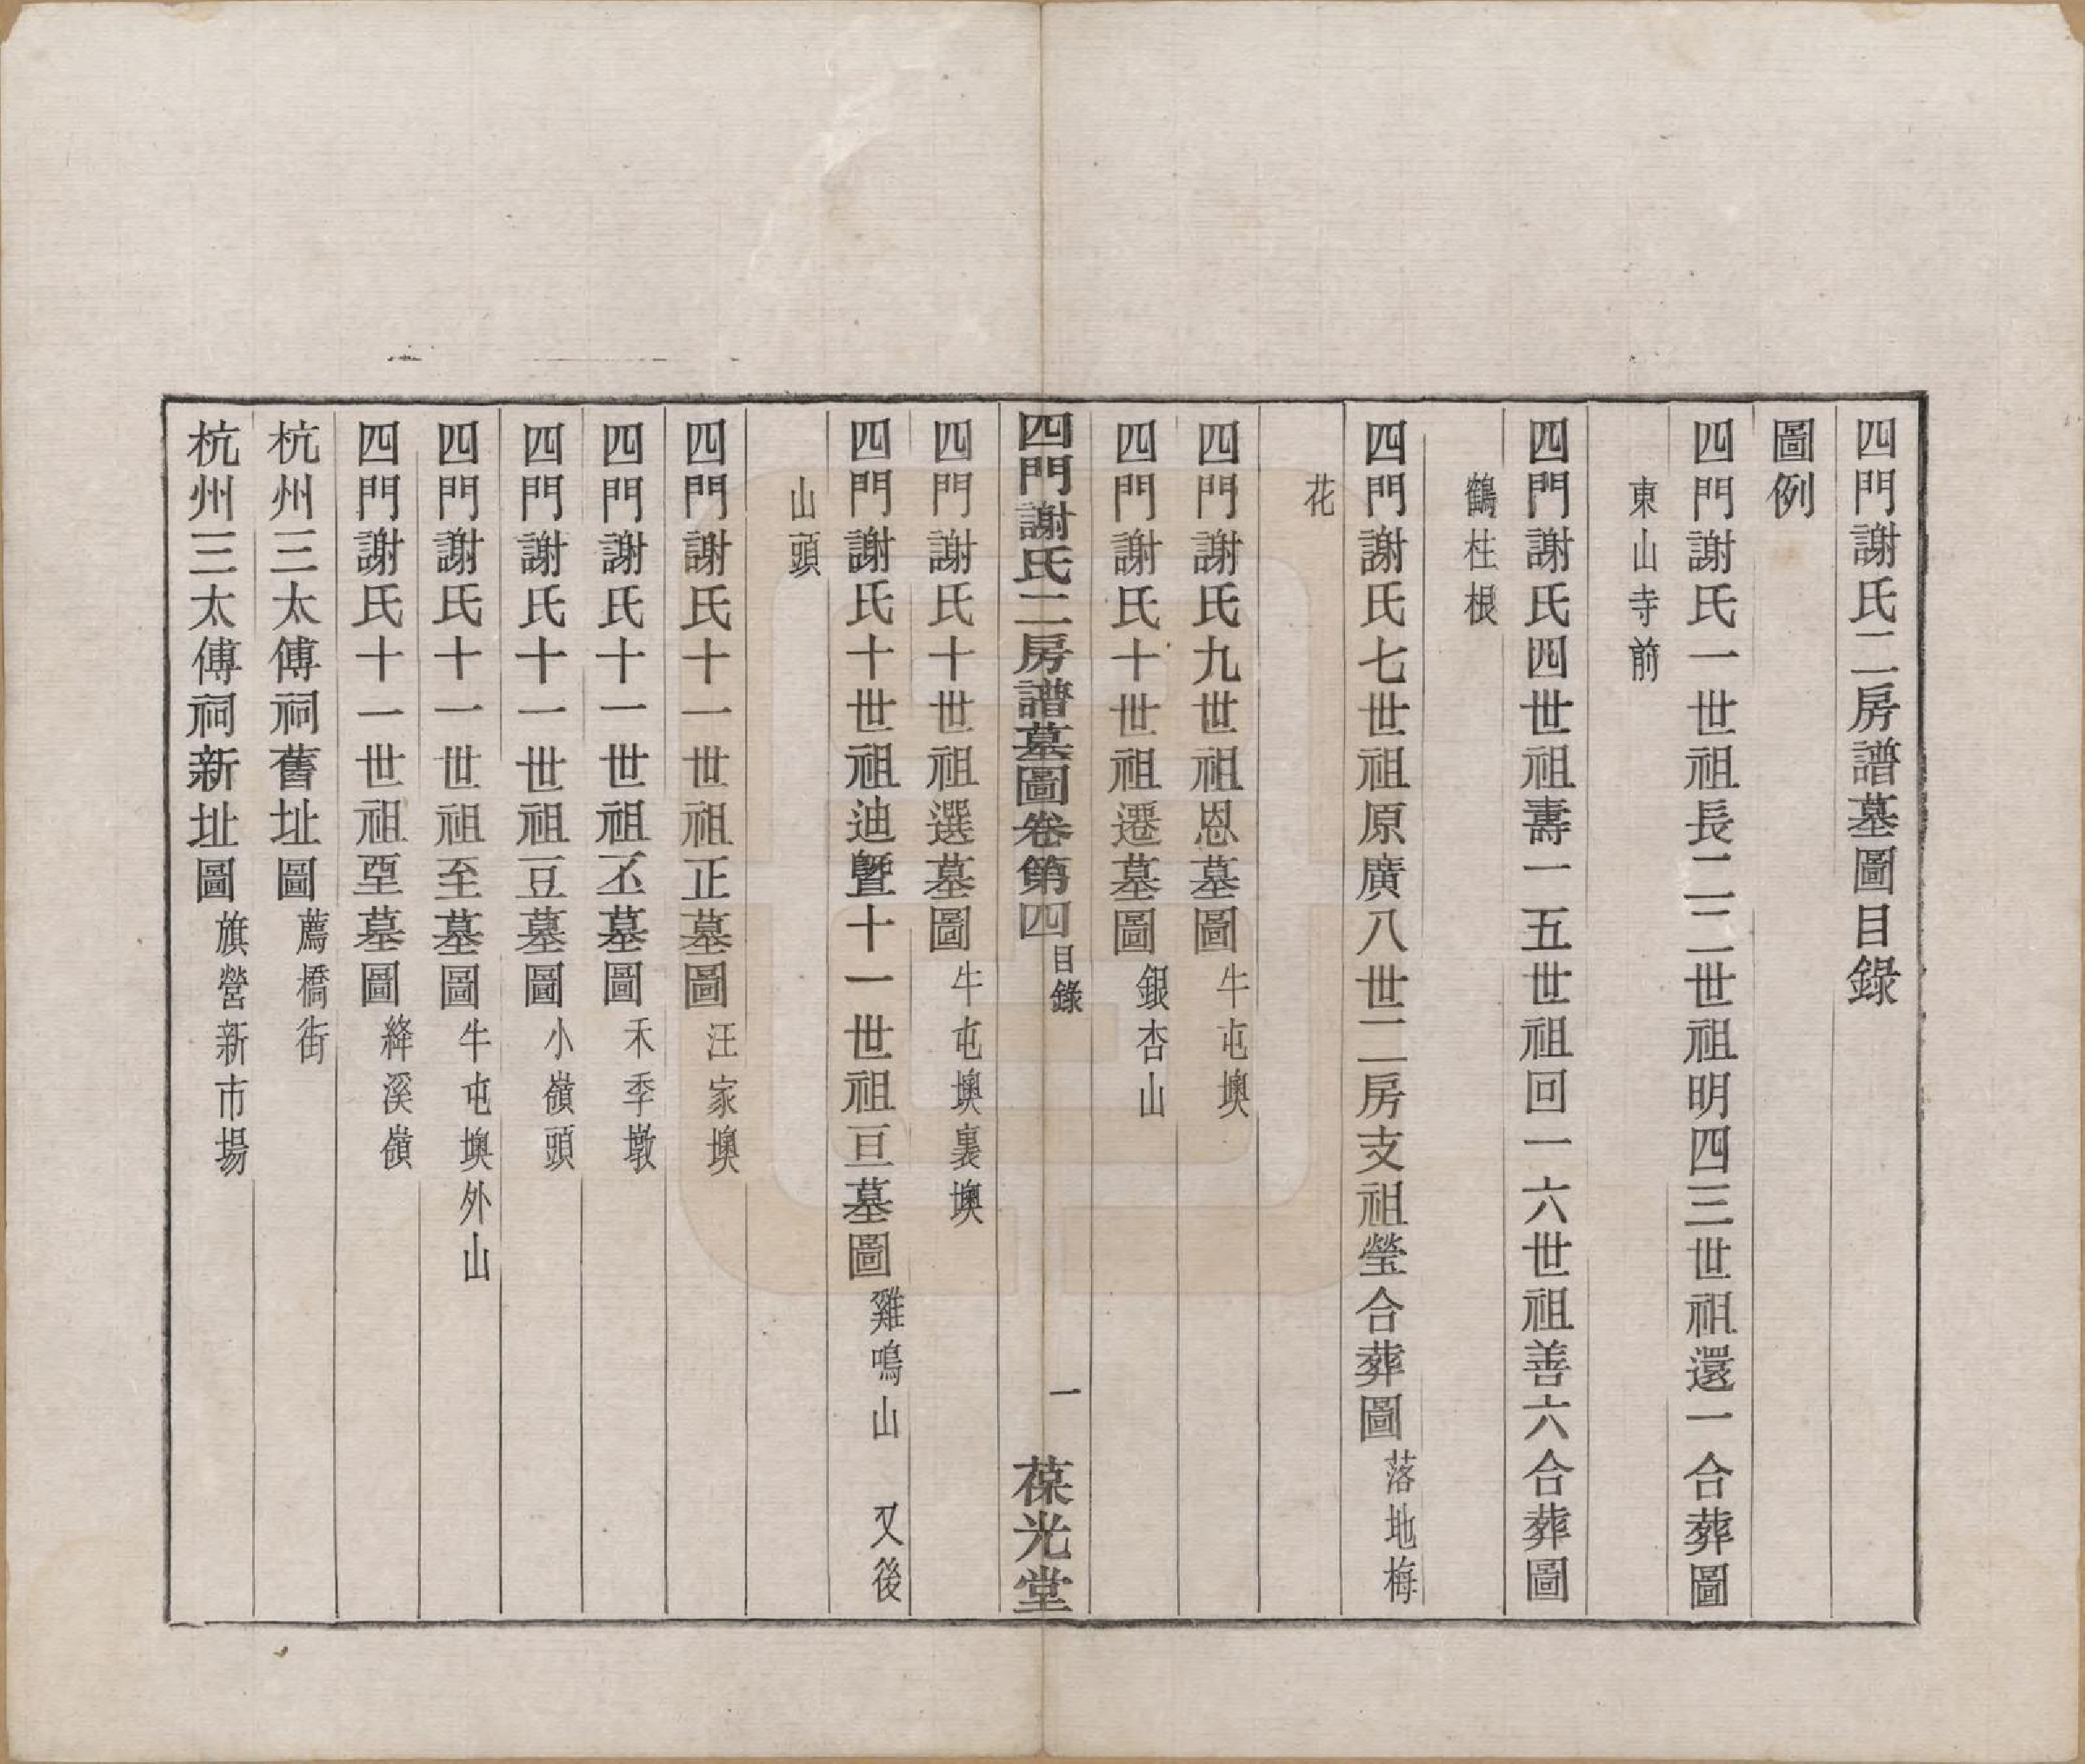 四門謝氏二房譜墓圖目錄
圖例
四門謝氏一世祖長二二世祖明四三世祖還一合葬圖
東山寺前
四門謝氏四世祖壽一五世祖回一六世祖善六合葬圖
鶴柱根
四門謝氏七世祖原廣八世二房支祖瑩合葬圖落地梅
花
四門謝氏九世祖恩墓圖牛屯墺
四門謝氏十世祖遷墓圖銀杏山
四門謝氏二房譜墓圖卷第四目錄 一 葆光堂
四門謝氏十世祖選墓圖牛屯墺裏墺
四門謝氏十世祖迪曁十一世祖亘墓圖雞鳴山 又後
山頭
四門謝氏十一世祖正墓圖汪家墺
四門謝氏十一世祖丕墓圖禾季墩
四門謝氏十一世祖豆墓圖小嶺頭
四門謝氏十一世祖至墓圖牛屯墺外山
四門謝氏十一世祖垔墓圖絳溪嶺
杭州三太傅祠舊址圖薦橋街
杭州三太傅祠新址圖旗營新市場